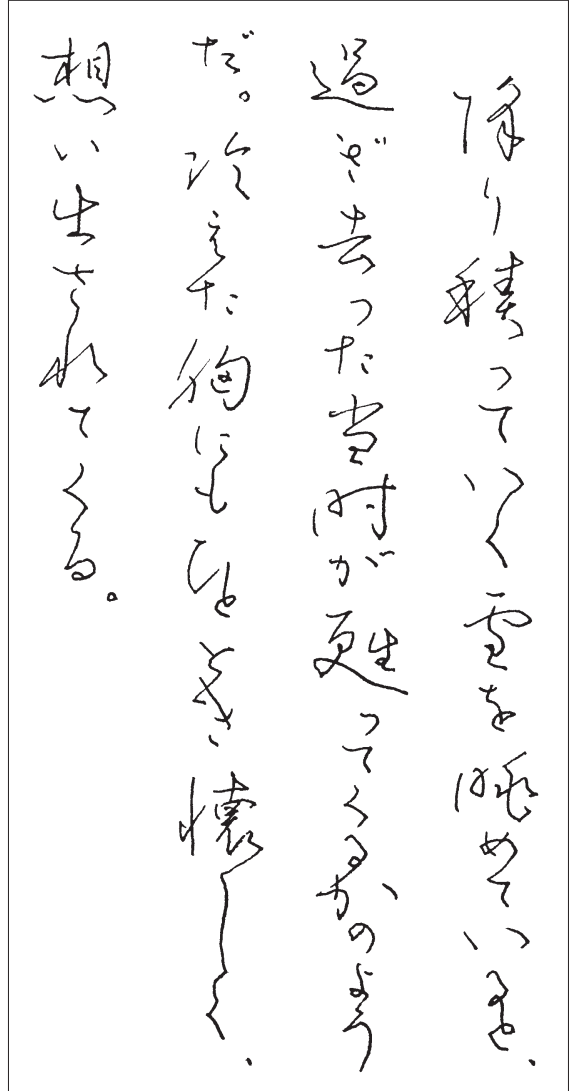 降り積っていく雪を眺めていると、
過ぎ去った当時が甦ってくるかのよう
だ。冷えた胸にもひとときは懐しく、
想い出されてくる。